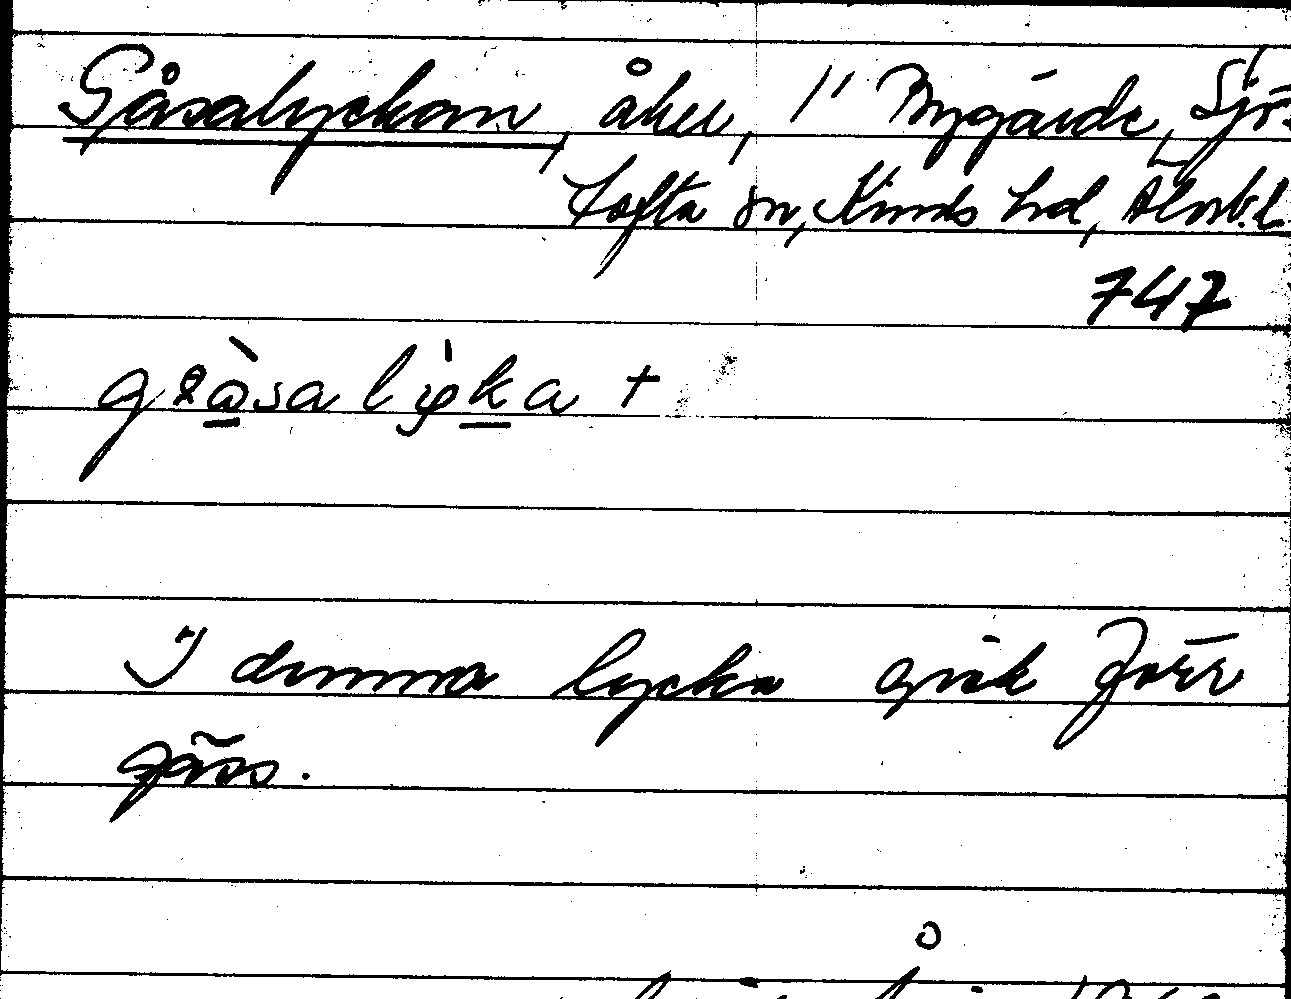 Gåsalyckan, åker, 1' Nygärde, Sjö-
tofta sn, Kinds hd, Älvsb.l.
747
I denna lycka gick förr
gäss.